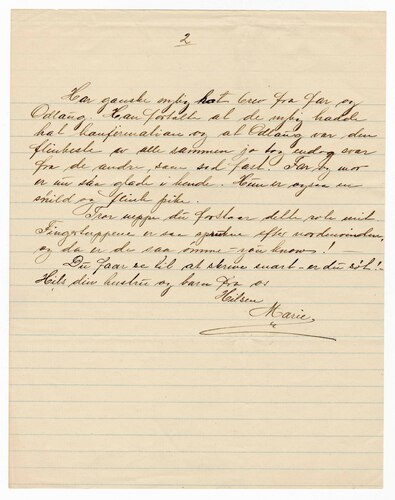 2
Har ganske nylig hat brev fra far og
Odlaug. Han fortalte at de nylig hadde
hat konfirmation og at Odlaug var den
flinkeste av alle sammen jo tog endog svar
fra de andre som sad fast. Far og mor
er nu saa glade i hende. Hun er ogsaa en
snild og flink pike.
Tror neppe du forstaar dette rote mit.
Fingertuppene er saa sprukne efter nordenvinden,
og da er de saa ømme - you know!
Du faar se til at skrive snart - er du söt!
Hils din hustru og barn fra os
Hilsen
Marie